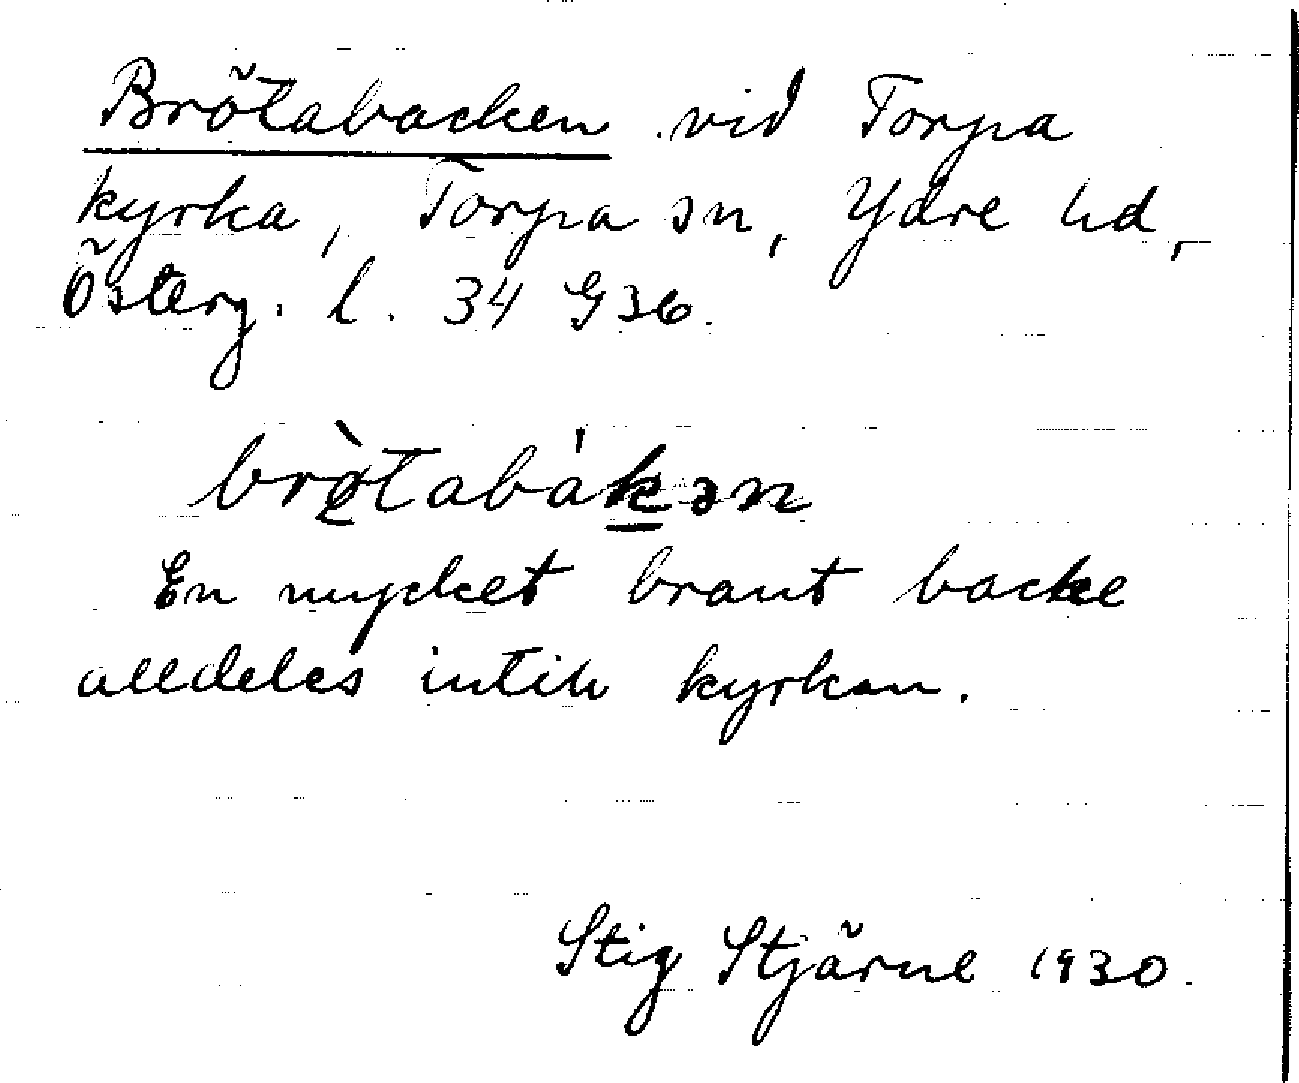 Brötabacken vid Torpa
kyrka, Torpa sn, Ydre hd,
Österg. l. 34 G36.
brø̀tabákən
En mycket brant backe
alldeles intill kyrkan.
Stig Stjärne 1930.